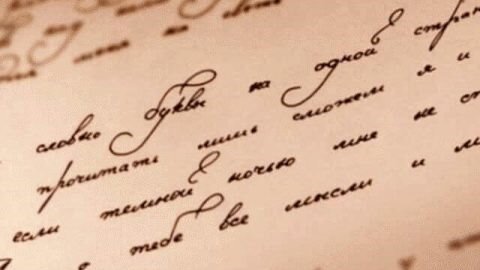 на свете
словно буквы на одной
прочитать лишь сможем я и
если темной ночью мне не
тебе все мысли и